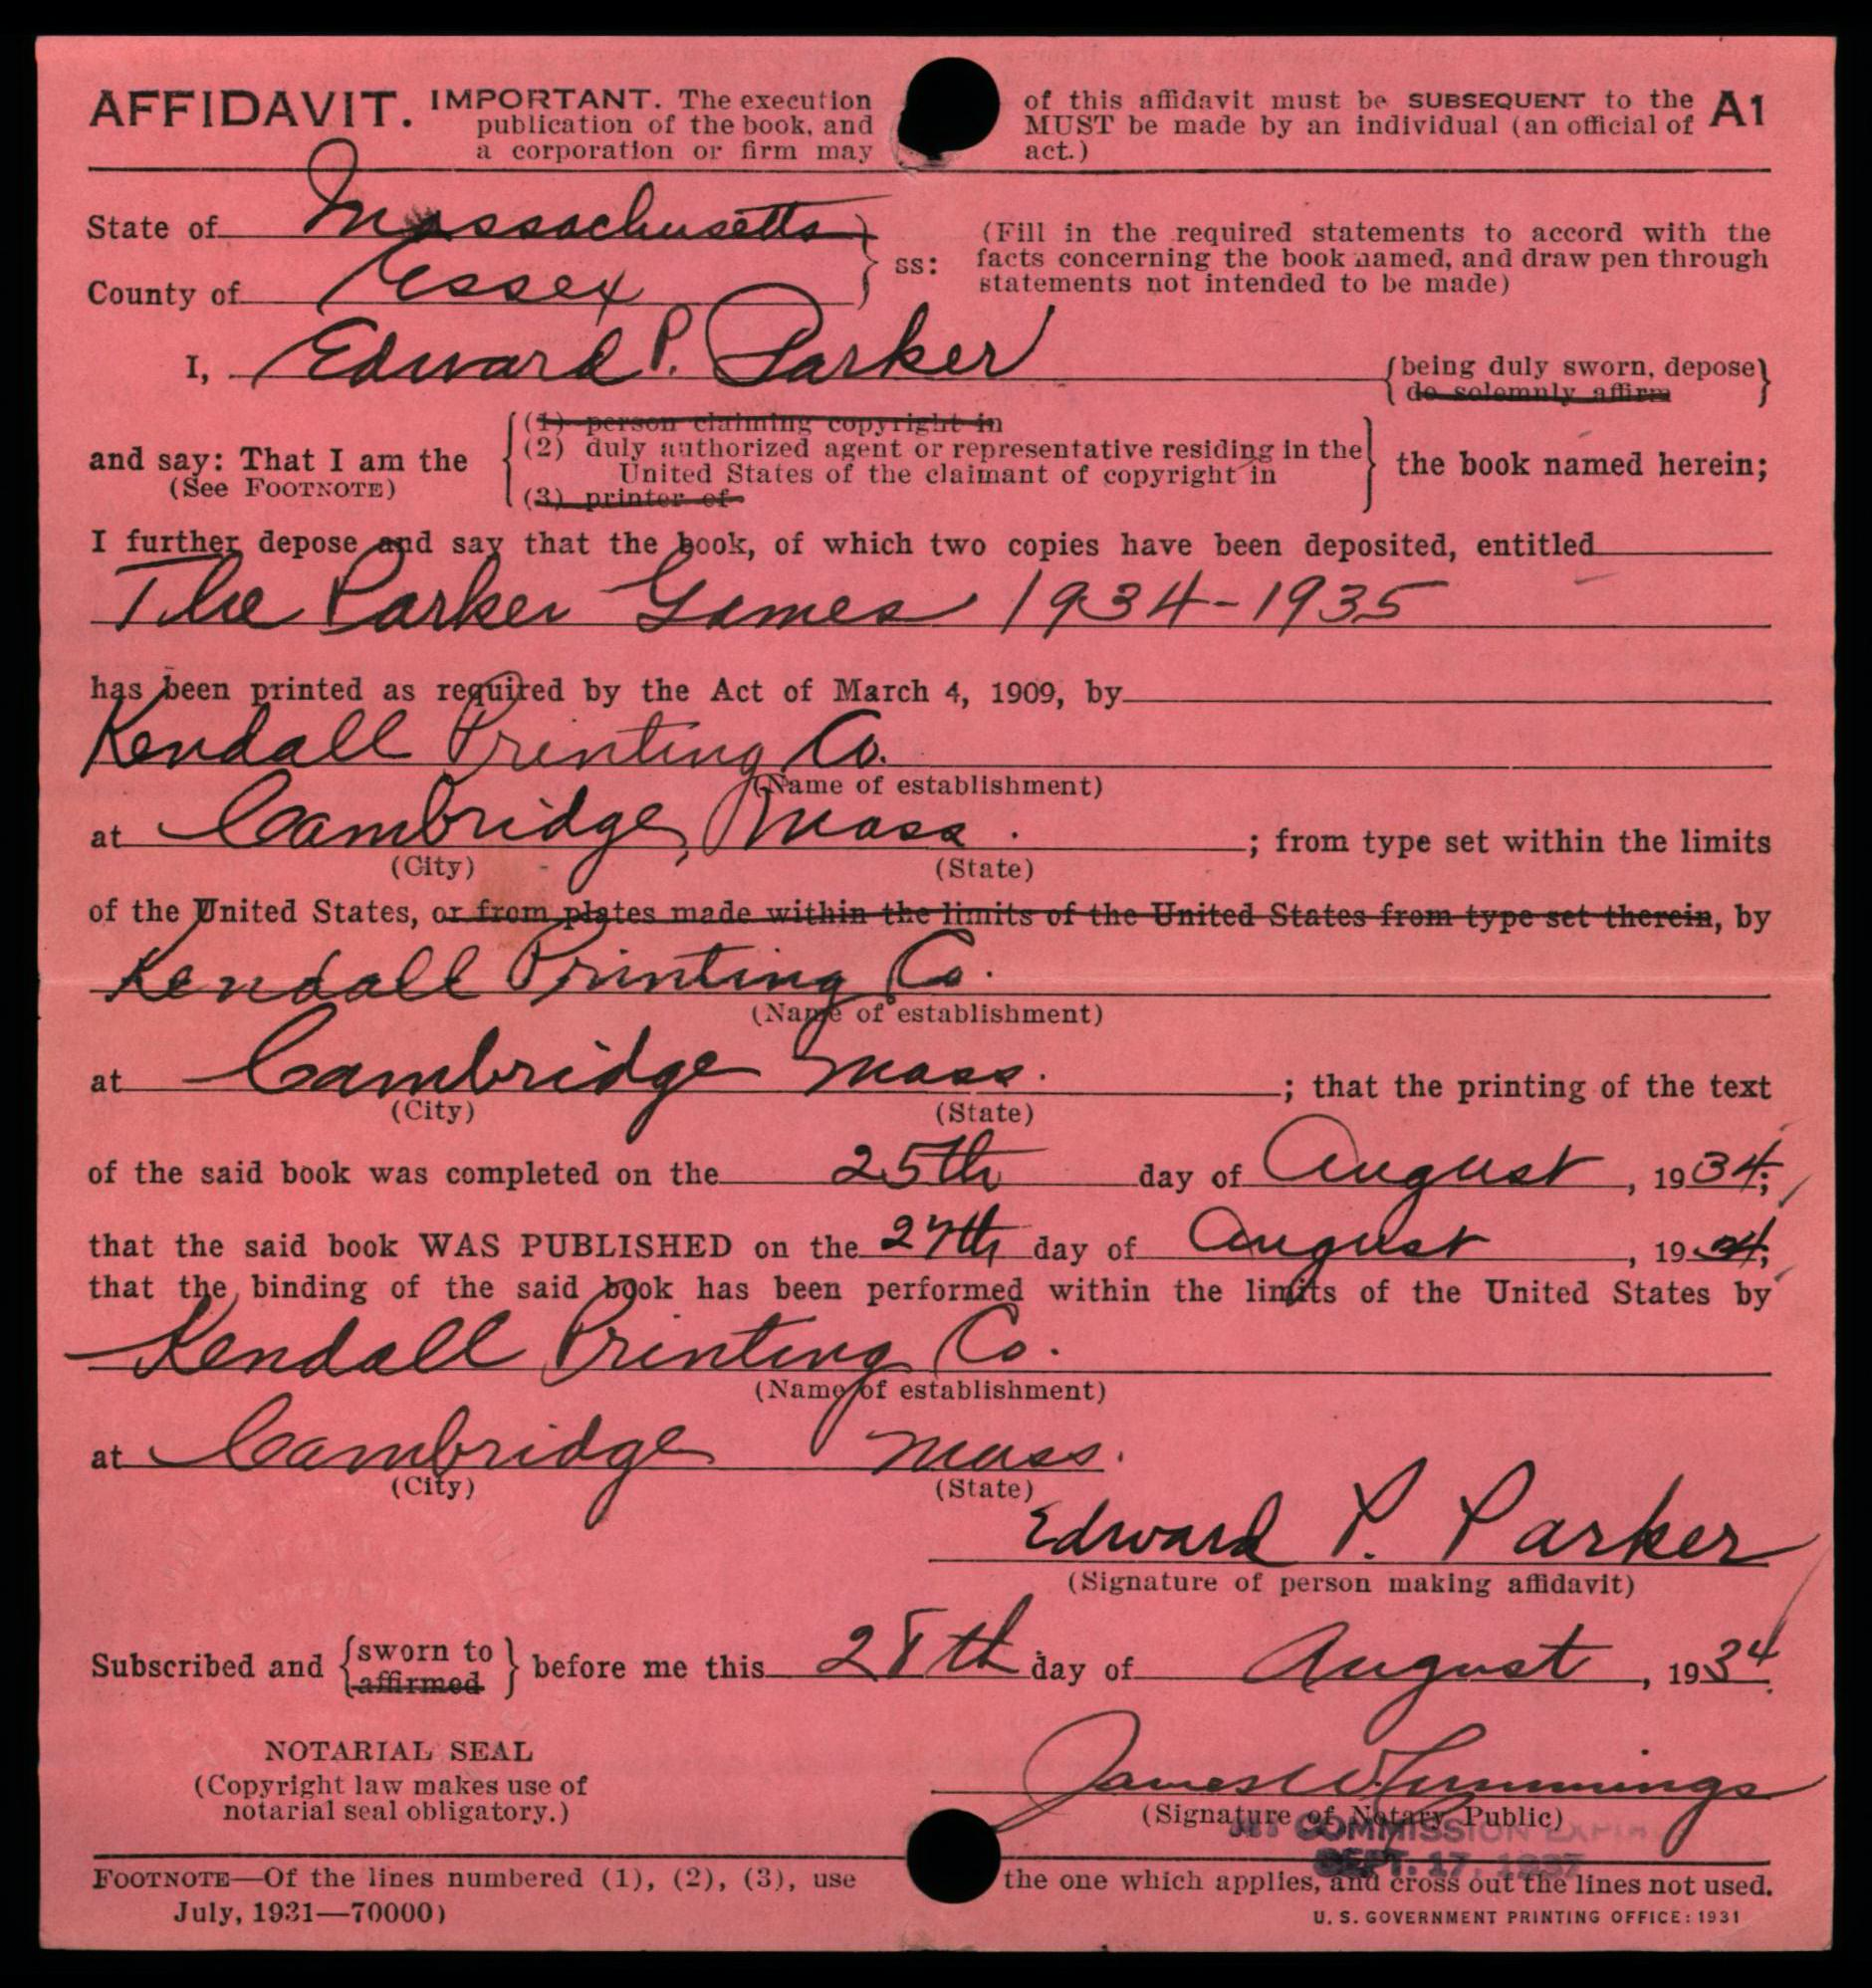 AFFIDAVIT. IMPORTANT. The execution of this affidavit must be SUBSEQUENT to the A1
publication of the book, and MUST be made by an individual (an official of
a corporation or firm may act.)
State of Massachusetts
County of Essex
} ss:
(Fill in the required statements to accord with the
facts concerning the book named, and draw pen through
statements not intended to be made)
I, Edward P. Parker {being duly sworn, depose}
do solemnly affirm
and say: That I am the
(See FOOTNOTE)
(1) person claiming copyright in
(2) duly authorized agent or representative residing in the
United States of the claimant of copyright in
(3) printer of
the book named herein;
I further depose and say that the book, of which two copies have been deposited, entitled
The Parker Games 1934-1935
has been printed as required by the Act of March 4, 1909, by
Kendall Printing Co.
(Name of establishment)
at Cambridge, Mass. ; from type set within the limits
(City) (State)
of the United States, or from plates made within the limits of the United States from type set therein, by
Kendall Printing Co.
(Name of establishment)
at Cambridge Mass. ; that the printing of the text
(City) (State)
of the said book was completed on the 25th day of August, 1934;
that the said book WAS PUBLISHED on the 27th day of August, 1934;
that the binding of the said book has been performed within the limits of the United States by
Kendall Printing Co.
(Name of establishment)
at Cambridge Mass.
(City) (State)
Edward P. Parker
(Signature of person making affidavit)
Subscribed and {sworn to} before me this 28th day of August, 1934.
affirmed
NOTARIAL SEAL
(Copyright law makes use of
notarial seal obligatory.)
James W. Hummings
(Signature of Notary Public)
COMMISSION EXPIRES
SEPT. 17, 1937
FOOTNOTE—Of the lines numbered (1), (2), (3), use the one which applies, and cross out the lines not used.
July, 1931—70000)
U. S. GOVERNMENT PRINTING OFFICE: 1931